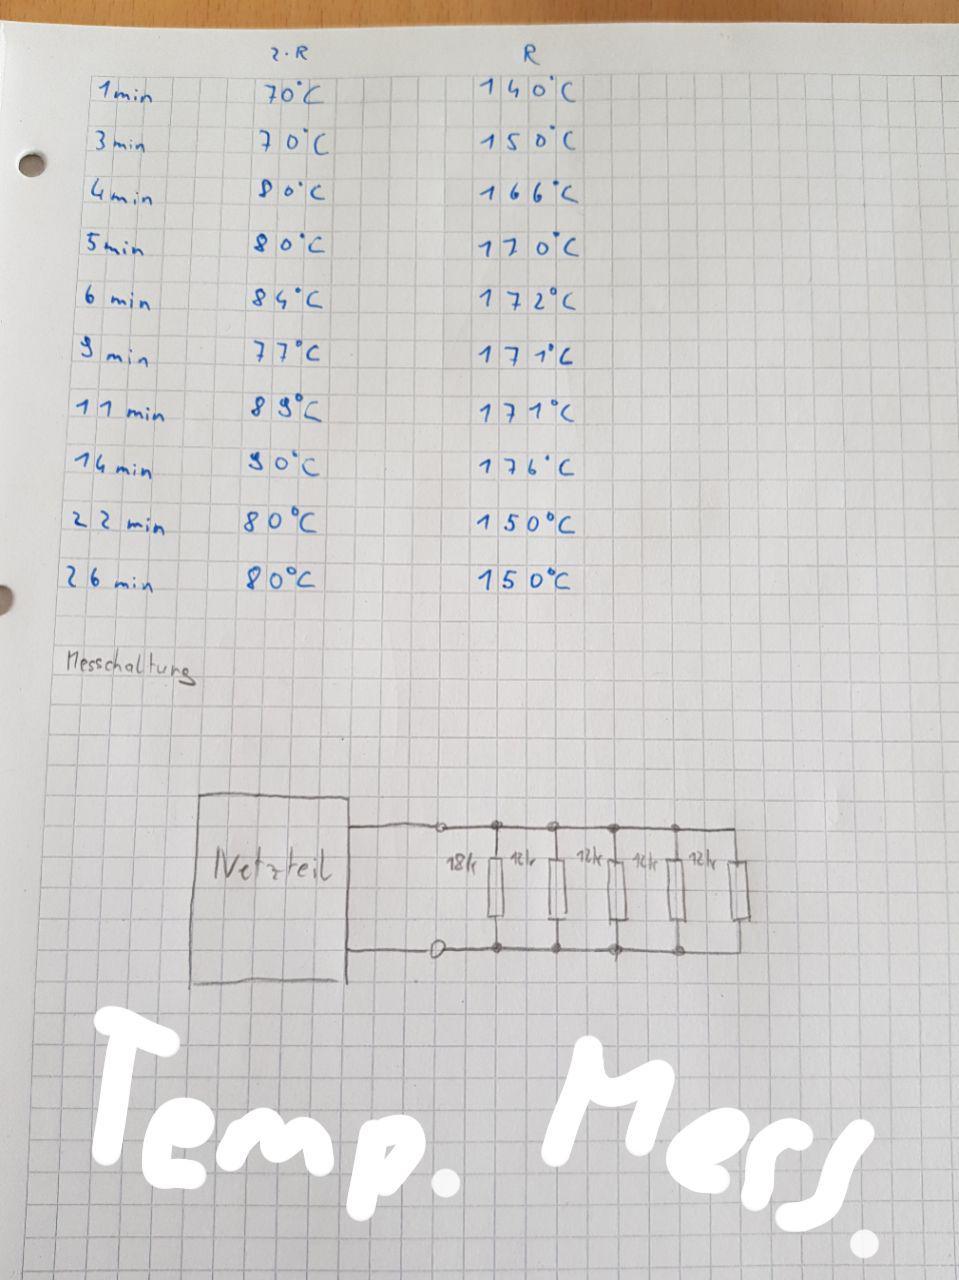 2·R R
1min 70°C 140°C
3 min 70°C 150°C
4min 80°C 166°C
5min 80°C 170°C
6 min 84°C 172°C
9 min 77°C 171°C
11 min 89°C 171°C
14 min 90°C 176°C
22 min 80°C 150°C
26 min 80°C 150°C
Messchaltung
Netzteil 18k 12k 12k 12k 12k
Temp. Mess.